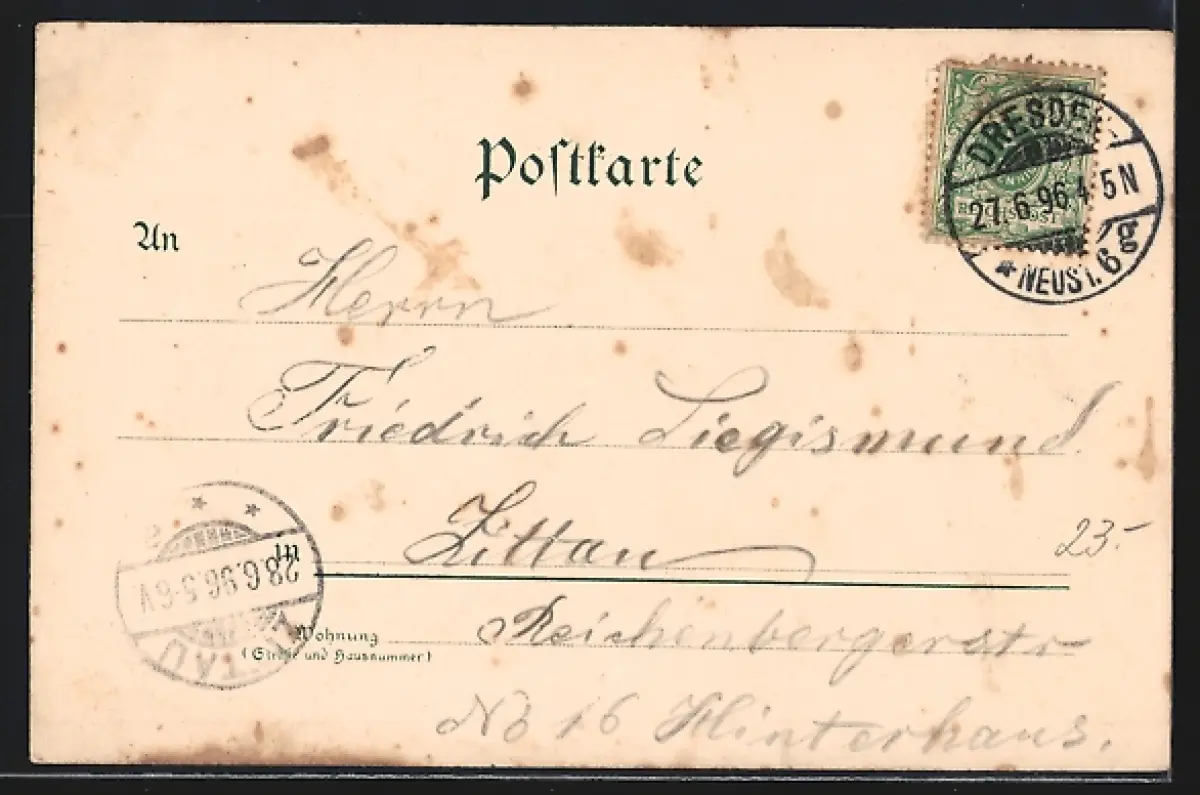 Postkarte
DRESDEN
27.6.96.4-5N
*NEUST. 6g
REICHSPOST
An
Herrn
Friedrich Siegismund.
in Zittau
23.-
Wohnung Reichenbergerstr
(Straße und Hausnummer)
No 16 Hinterhaus.
ZITTAU
28.6.96.5-6V